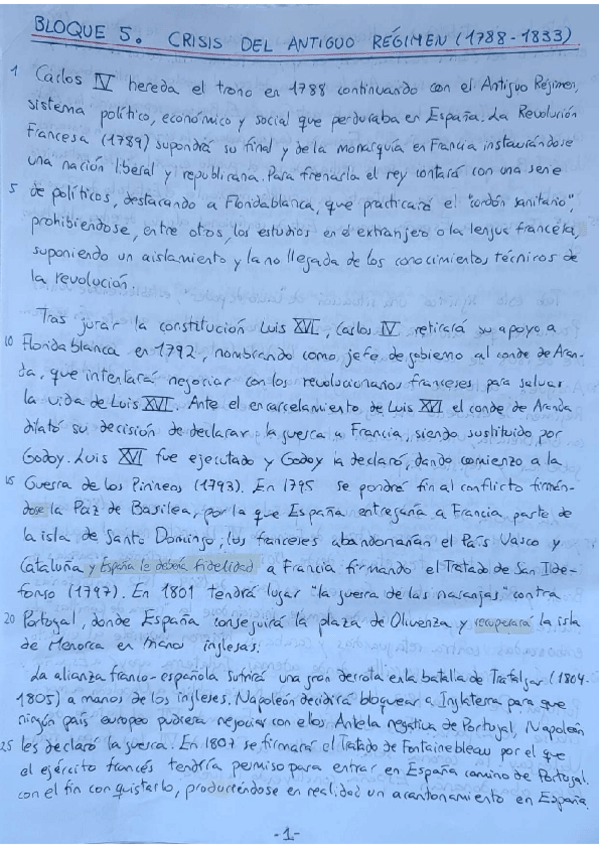 BLOQUE 5. CRISIS DEL ANTIGUO RÉGIMEN (1788-1833)
1 Carlos IV hereda el trono en 1788 continuando con el Antiguo Régimen,
sistema político, económico y social que perduraba en España. La Revolución
Francesa (1789) supondrá su final y de la monarquía en Francia instaurándose
una nación liberal y republicana. Para frenarla el rey contará con una serie
5 de políticos, destacando a Floridablanca, que practicará el "cordón sanitario",
prohibiéndose, entre otros, los estudios en el extranjero o la lengua francesa,
suponiendo un aislamiento y la no llegada de los conocimientos técnicos de
la revolución.
Tras jurar la constitución Luis XVI, Carlos IV retirará su apoyo a
10 Floridablanca en 1792, nombrando como jefe de gobierno al conde de Aran-
da, que intentará negociar con los revolucionarios franceses para salvar
la vida de Luis XVI. Ante el encarcelamiento de Luis XVI el conde de Aranda
dilató su decisión de declarar la guerra a Francia, siendo sustituido por
Godoy. Luis XVI fue ejecutado y Godoy la declaró, dando comienzo a la
15 Guerra de los Pirineos (1793). En 1795 se pondrá fin al conflicto firmán-
dose la Paz de Basilea, por la que España entregaría a Francia parte de
la isla de Santo Domingo; los franceses abandonarían el País Vasco y
Cataluña y España le debería fidelidad a Francia firmando el Tratado de San Ilde-
fonso (1797). En 1801 tendrá lugar "la guerra de las naranjas" contra
20 Portugal, donde España conseguirá la plaza de Olivenza y recuperará la isla
de Menorca en manos inglesas.
La alianza franco-española sufrirá una gran derrota en la batalla de Trafalgar (1804-
1805) a manos de los ingleses. Napoleón decidirá bloquear a Inglaterra para que
ningún país europeo pudiera negociar con ellos. Ante la negativa de Portugal, Napoleón
25 les declaró la guerra. En 1807 se firmará el Tratado de Fontainebleau por el que
el ejército francés tendría permiso para entrar en España camino de Portugal
con el fin conquistarlo, produciéndose en realidad un acantonamiento en España.
-1-